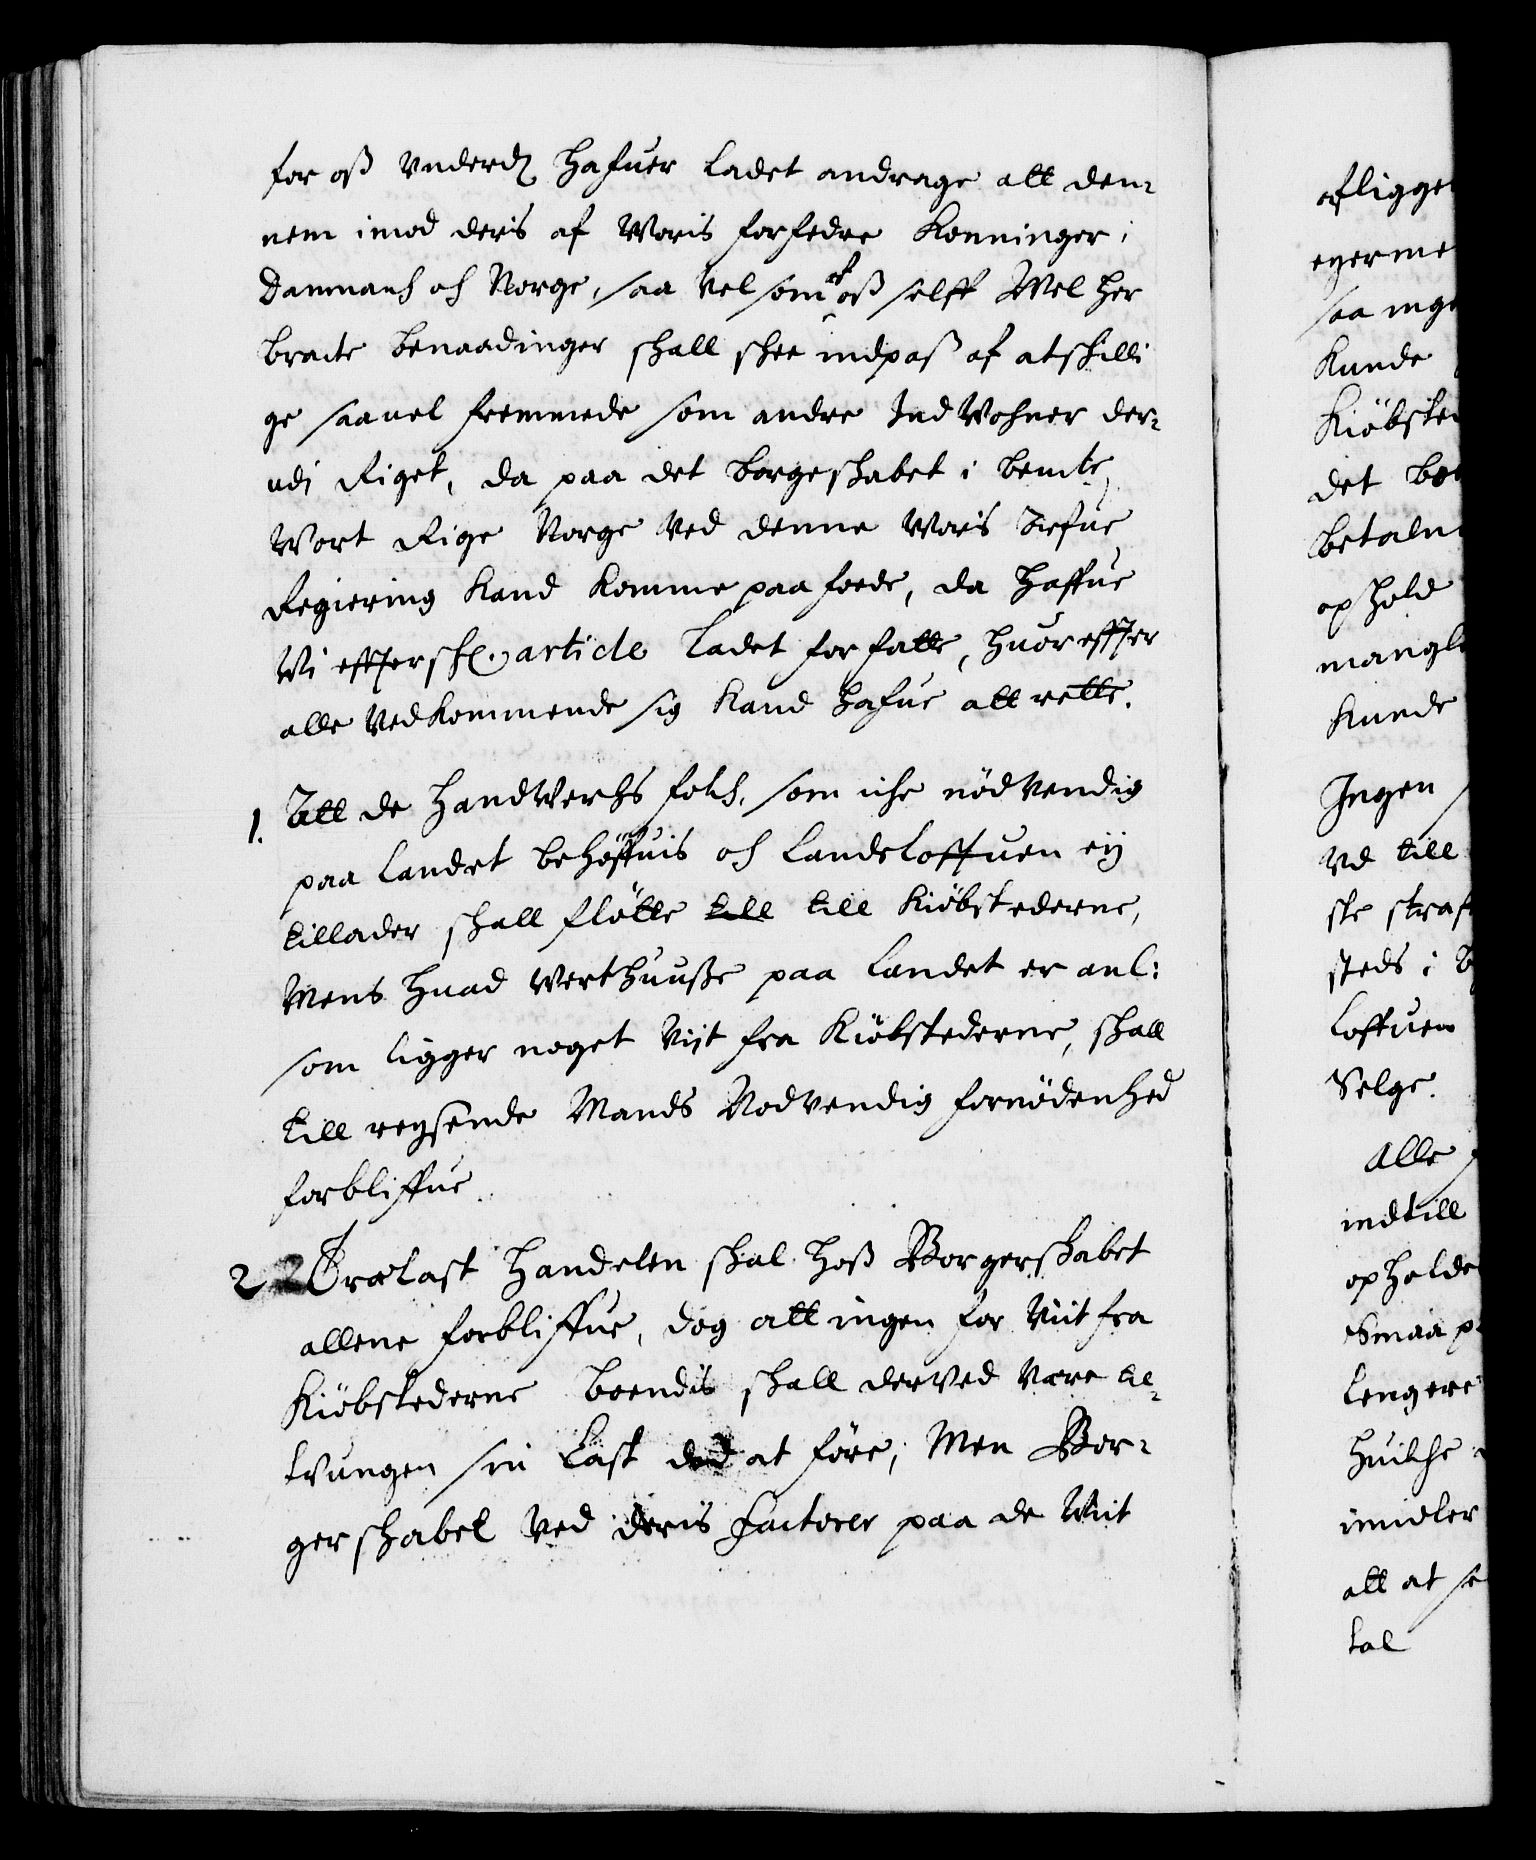 for oß underd. hafuer ladet andrage att den-
nem imod deris af Woris forfedre Konninger i
Danmarch och Norge, saa vel som af oß selff Wel her
bracte benaadinger skall skee indpas af atskilli
ge saauel fremmede som andre IndWohner der-
udi Riget, da paa det borgeskabet i bemte
Wort Rige Norge Ved denne Woris
Regiering Kand Komme paa foede, da haffue
Wi effterskr. article ladet forfatte, huor effter
alle Vedkommende sig Kand hafue att rette.
1. Att de Handtwercks folch, som iche nödvendig
paa landet behöffuis och landsloffuen eij
tillader skall flötte till till Kiöbstederne,
Mens huad werthuuße paa landet er anl:
som ligger noget Vijt fra Kiöbstederne, skall
till reysende Mands Nodvendig fornödenhed
forbliffue.
2 2 Trælast Handelen skal hoß Borgerskabet
allene forbliffue, dog att ingen for Viit fra
Kiöbstederne boendis skall derved være til-
tvungen sin Last ded at före, Men Bor-
gerskabet Ved deris Factorer paa de Wiit
afligge
egerme
saa inge
Kunde
Kiöbste
det bo
betaln
ophold
mangl
Kunde
Ingen
Vd till
ste straf
steds i
Loffuen
Selge.
Alle
indtill
opholde
Smaa p
lengere
huilche
imidler
att at se
tal